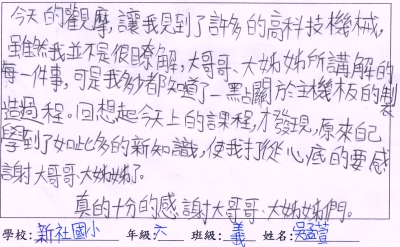 今天的觀摩,讓我見到了許多的高科技機械,
雖然我並不是很瞭解,大哥哥、大姊姊所講解的
每一件事,可是我多多都知道了一點關於主機板的製
造過程。回想起今天上的課程,才發現,原來自己
學到了如此多的新知識,使我打從心底的要感
謝大哥哥、大姊姊了。
真的十分的感謝大哥哥、大姊姊們。
學校:新社國小 年級:六 班級:義 姓名:吳孟萱